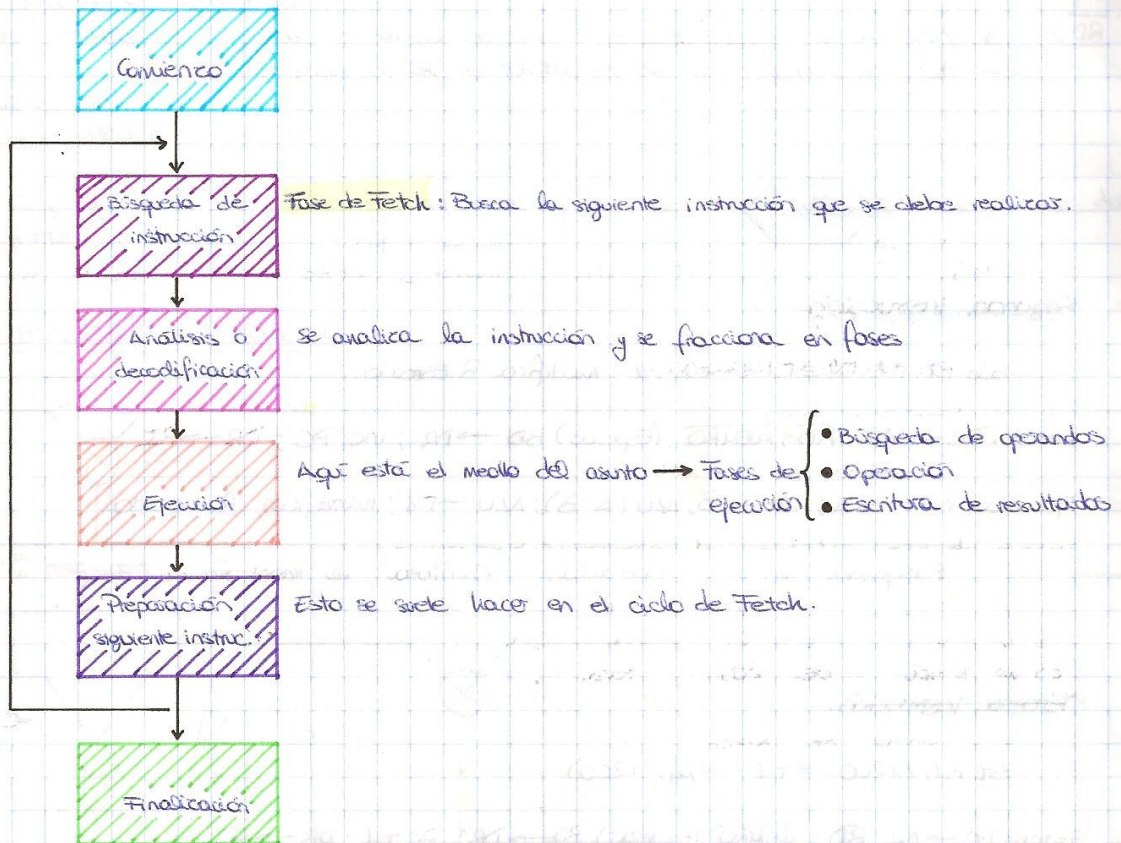 Comienzo
Búsqueda de
instrucción
Fase de Fetch: Busca la siguiente instrucción que se debe realizar.
Análisis o
decodificación
se analiza la instrucción y se fracciona en fases
Ejecución
Aquí está el meollo del asunto → Fases de
ejecución
• Búsqueda de operandos
• Operación
• Escritura de resultados
Preparación
siguiente instruc.
Esto se suele hacer en el ciclo de Fetch.
Finalización